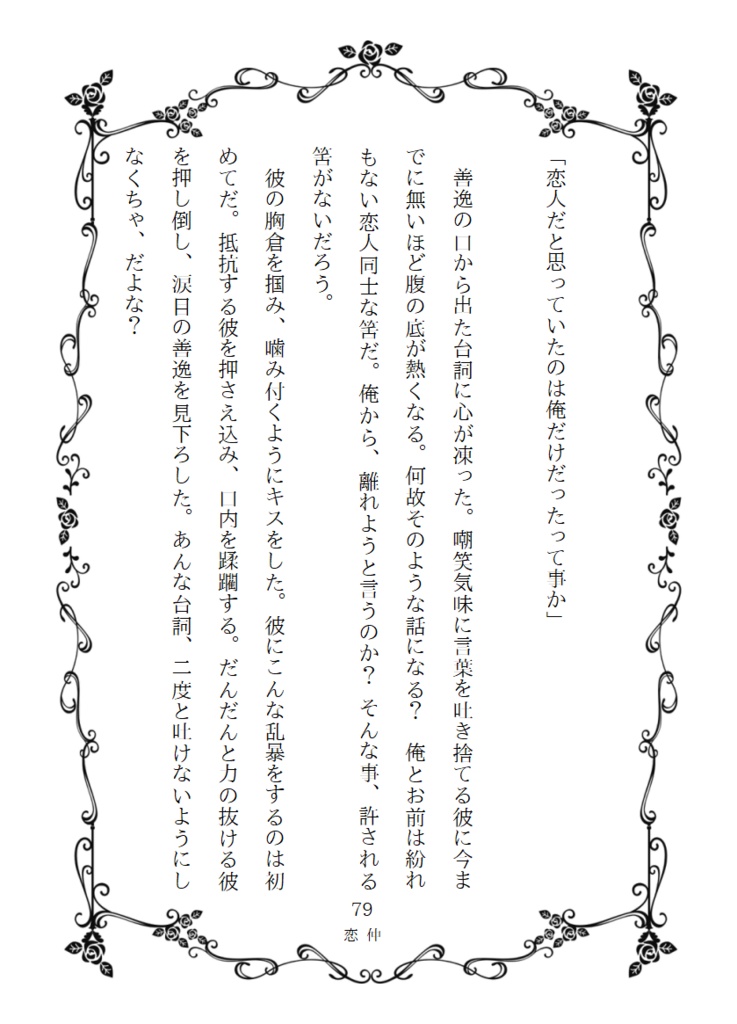 「恋人だと思っていたのは俺だけだったって事か」
善逸の口から出た台詞に心が凍った。嘲笑気味に言葉を吐き捨てる彼に今ま
でに無いほど腹の底が熱くなる。何故そのような話になる？　俺とお前は紛れ
もない恋人同士な筈だ。俺から、離れようと言うのか？そんな事、許される
筈がないだろう。
彼の胸倉を掴み、噛み付くようにキスをした。彼にこんな乱暴をするのは初
めてだ。抵抗する彼を押さえ込み、口内を蹂躙する。だんだんと力の抜ける彼
を押し倒し、涙目の善逸を見下ろした。あんな台詞、二度と吐けないようにし
なくちゃ、だよな？
79
恋仲